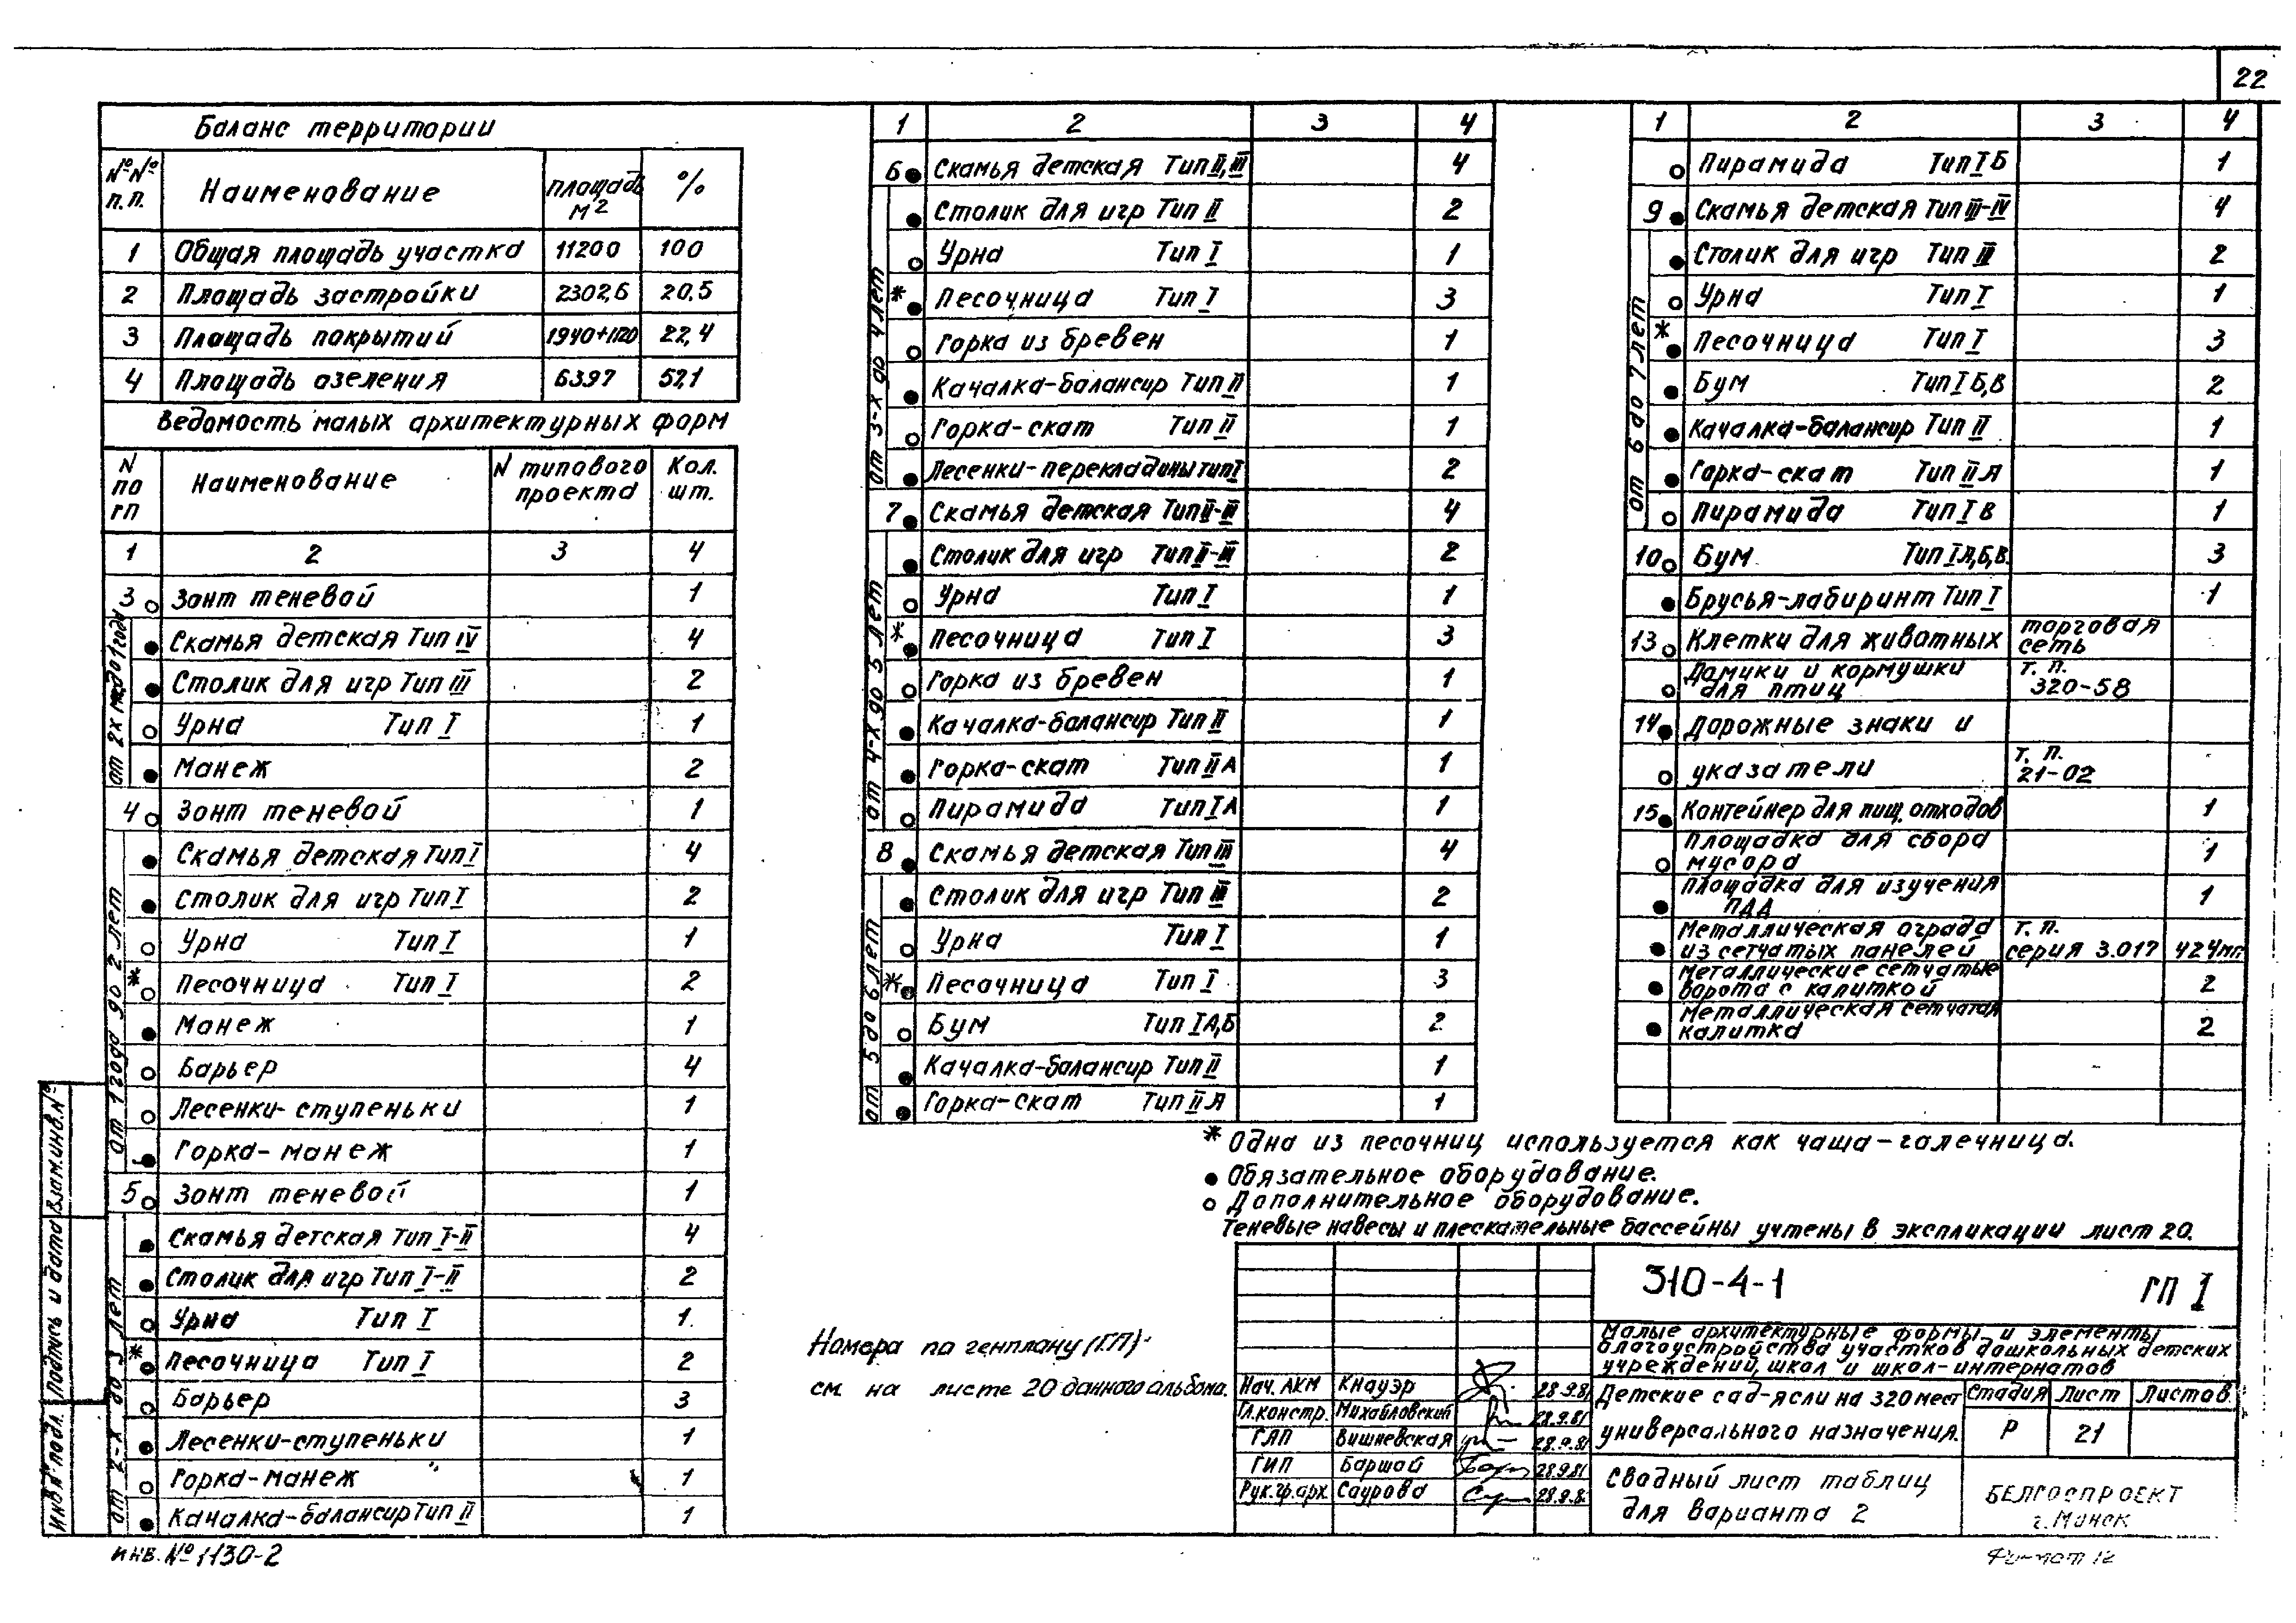 22
Баланс территории
№№ п.п. Наименование площадь м2 %
1 Общая площадь участка 11200 100
2 Площадь застройки 2302,6 20,5
3 Площадь покрытий 1940+1120 22,4
4 Площадь озеленения 6397 57,1
Ведомость малых архитектурных форм
N по гп Наименование N типового проекта Кол. шт.
1 2 3 4
3 ○ Зонт теневой 1
от 2х мес до 1 года
● Скамья детская Тип IV 4
● Столик для игр Тип III 2
○ Урна Тип I 1
● Манеж 2
4 ○ Зонт теневой 1
от 1 года до 2 лет
● Скамья детская Тип I 4
● Столик для игр Тип I 2
○ Урна Тип I 1
* ○ Песочница Тип I 2
● Манеж 1
○ Барьер 4
○ Лесенки-ступеньки 1
● Горка-манеж 1
5 ○ Зонт теневой 1
от 2-х до 3 лет
● Скамья детская Тип I-II 4
● Столик для игр Тип I-II 2
○ Урна Тип I 1
* ● Песочница Тип I 2
○ Барьер 3
● Лесенки-ступеньки 1
○ Горка-манеж 1
● Качалка-балансир Тип II 1
1 2 3 4
6 ● Скамья детская Тип II, III 4
от 3-х до 4 лет
● Столик для игр Тип II 2
○ Урна Тип I 1
* ● Песочница Тип I 3
○ Горка из бревен 1
● Качалка-балансир Тип II 1
○ Горка-скат Тип II 1
● Лесенки-перекладины тип I 2
7 ● Скамья детская Тип II-III 4
от 4-х до 5 лет
● Столик для игр Тип II-III 2
○ Урна Тип I 1
* ● Песочница Тип I 3
○ Горка из бревен 1
● Качалка-балансир Тип II 1
● Горка-скат Тип II А 1
○ Пирамида Тип I А 1
8 ● Скамья детская Тип III 4
от 5 до 6 лет
● Столик для игр Тип III 2
○ Урна Тип I 1
* ● Песочница Тип I 3
○ Бум Тип I А,Б 2
● Качалка-балансир Тип II 1
● Горка-скат Тип II А 1
1 2 3 4
○ Пирамида Тип I Б 1
9 ● Скамья детская Тип III-IV 4
от 6 до 7 лет
● Столик для игр Тип III 2
○ Урна Тип I 1
* ● Песочница Тип I 3
● Бум Тип I Б,В 2
● Качалка-балансир Тип II 1
● Горка-скат Тип II А 1
○ Пирамида Тип I В 1
10 ○ Бум Тип I А,Б,В. 3
● Брусья-лабиринт Тип I 1
13 ○ Клетки для животных торговая сеть
○ Домики и кормушки для птиц т. п. 320-58
14 ● Дорожные знаки и
○ указатели т. п. 21-02
15 ● Контейнер для пищ. отходов 1
○ Площадка для сбора мусора 1
● Площадка для изучения ПДД 1
● Металлическая ограда из сетчатых панелей т. п. серия 3.017 424мп
● Металлические сетчатые ворота с калиткой 2
● Металлическая сетчатая калитка 2
* Одна из песочниц используется как чаша-галечница.
● Обязательное оборудование.
○ Дополнительное оборудование.
Теневые навесы и плескательные бассейны учтены в экспликации лист 20.
Номера по генплану (ГП)
см. на листе 20 данного альбома.
310-4-1 ГП I
Малые архитектурные формы и элементы
благоустройства участков дошкольных детских
учреждений, школ и школ-интернатов
Нач. АКМ Кнауэр 28.9.81
Гл.констр. Михайловский 28.9.81
ГАП Вишневская 28.9.81
ГИП Баршай 28.9.81
Рук.гр.арх. Саурова 28.9.8
Детские сад-ясли на 320 мест
универсального назначения.
Стадия Лист Листов
Р 21
Сводный лист таблиц
для варианта 2
БЕЛГОСПРОЕКТ
г. Минск
Инв.№ подл. Подпись и дата Взам.инв.№
инв. № 1130-2
Формат 12